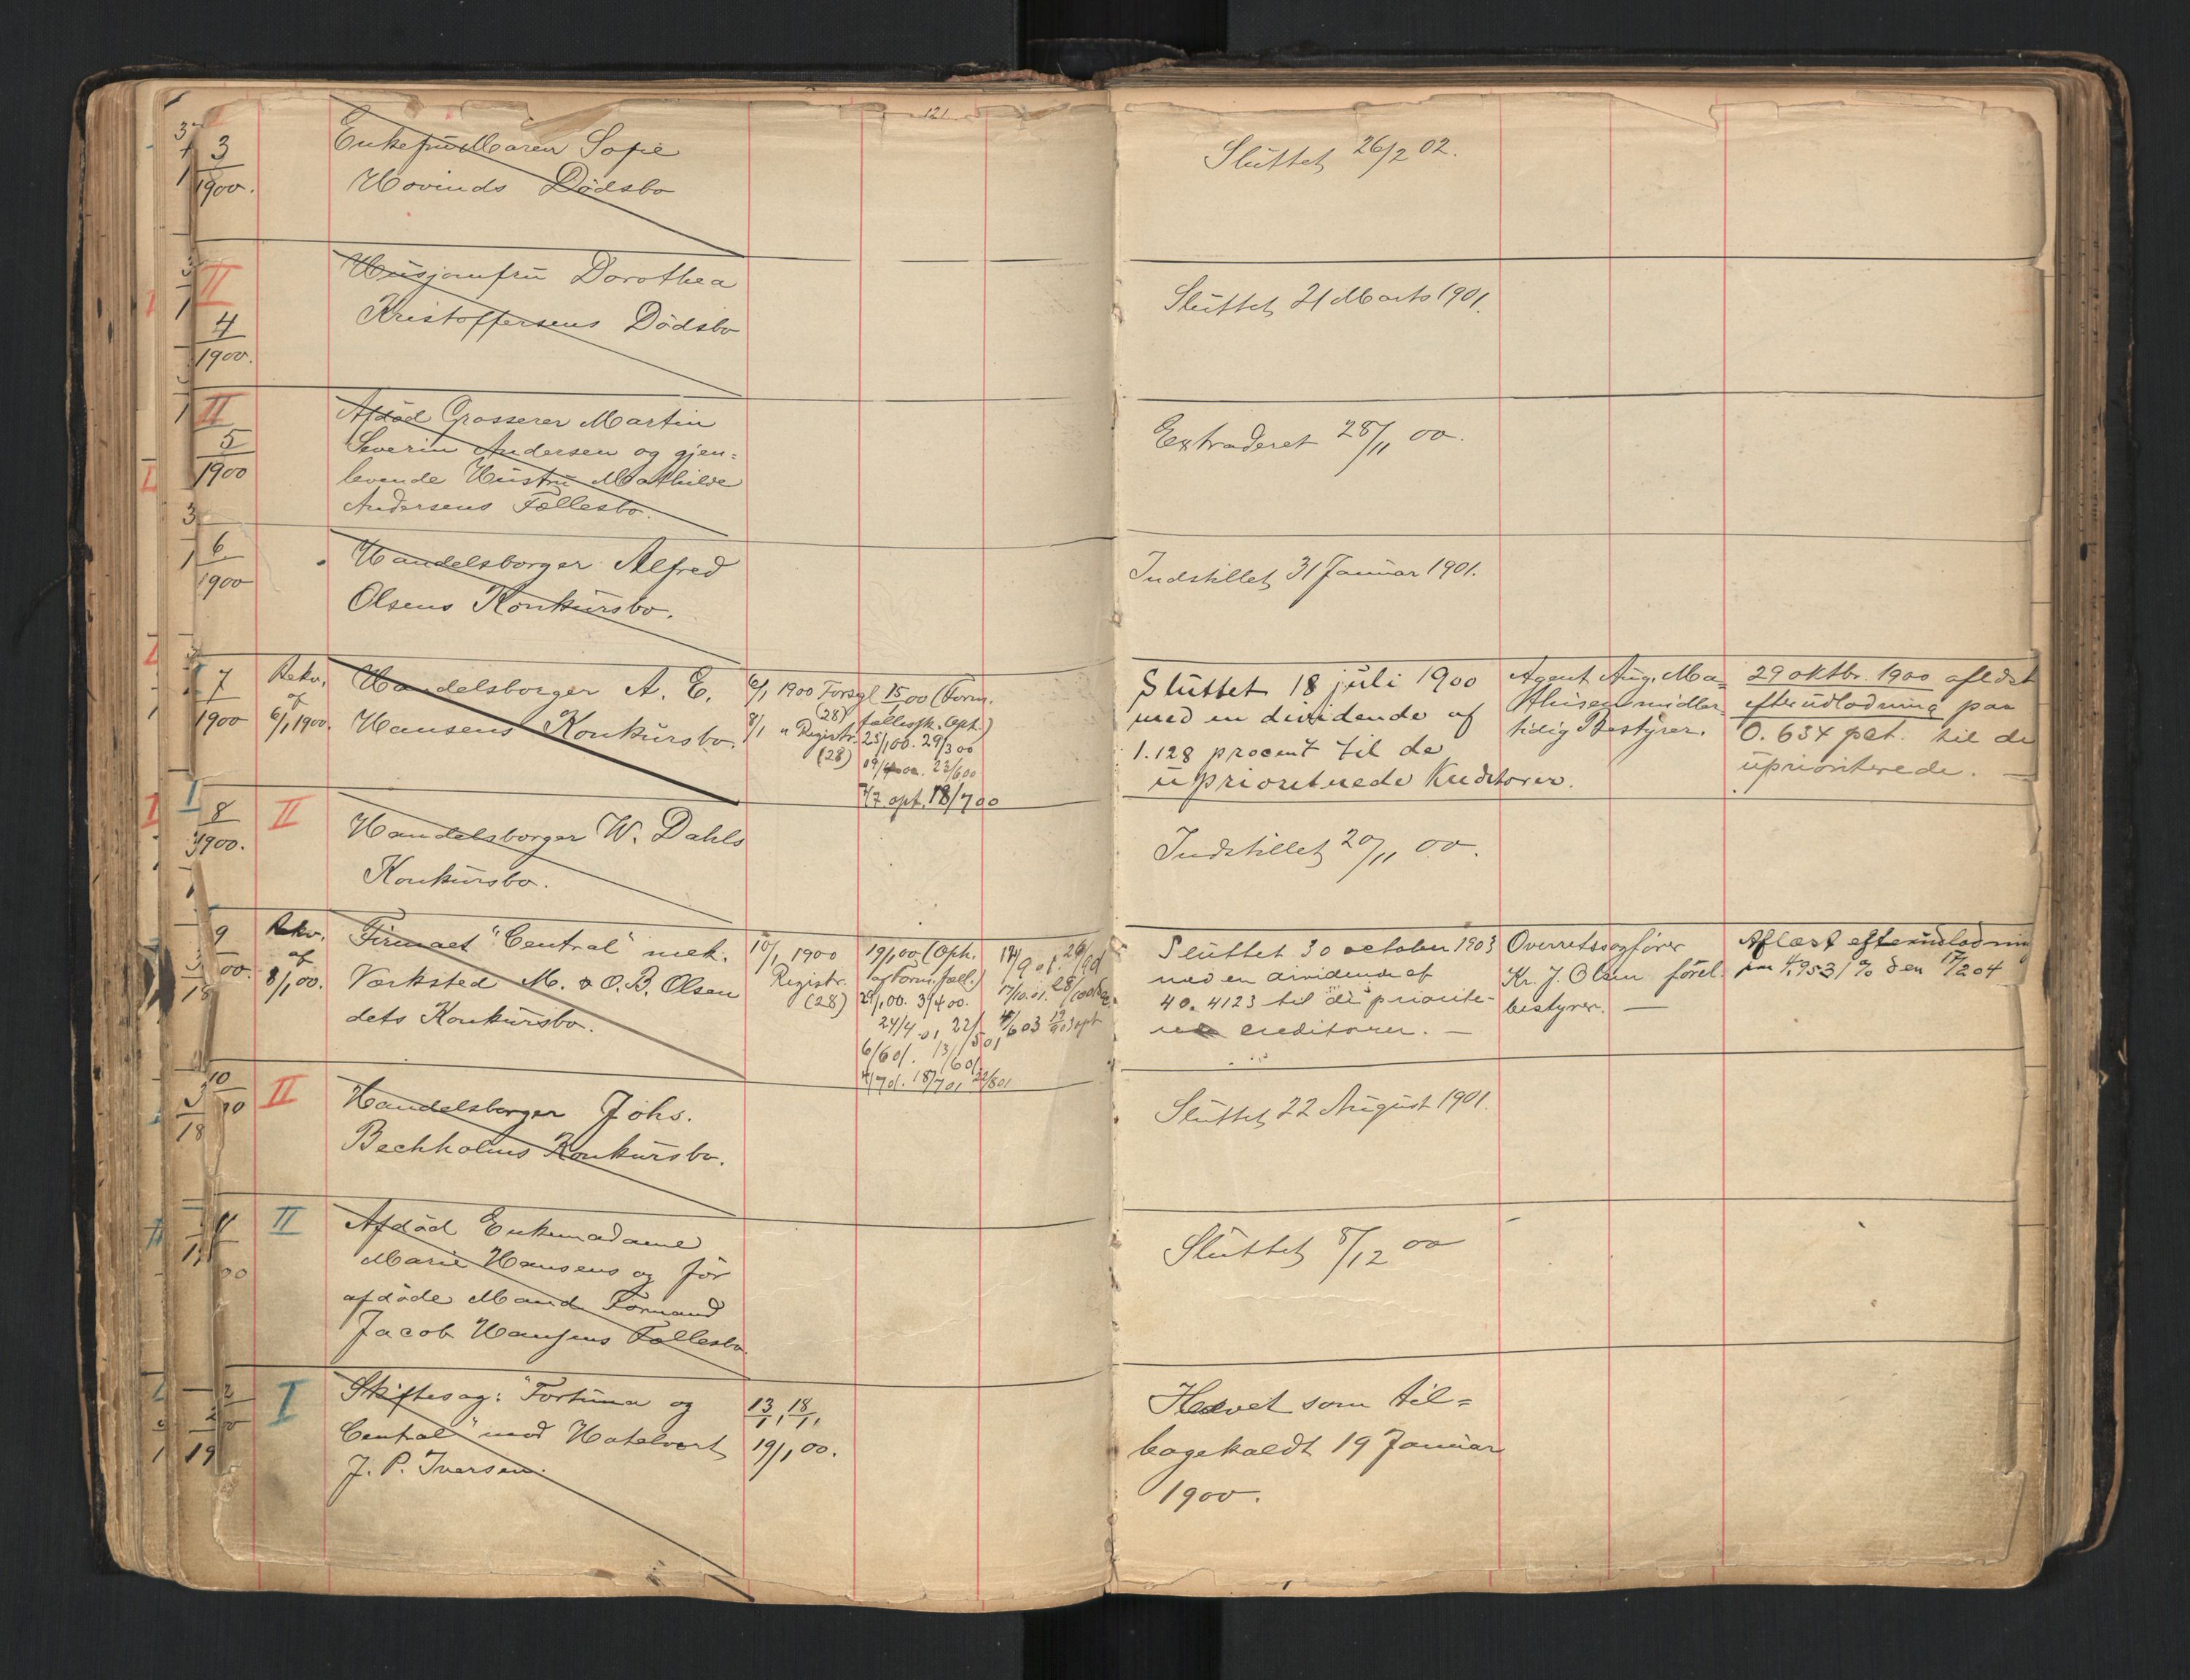 121
3
1900.
Enkefru Maren Sofie
Hovinds Dödsbo
Sluttet 26/2 02.
II
4
1900.
Husjomfru Dorothea
Kristoffersens Dödsbo
Sluttet 21 Marts 1901.
II
5
1900
Afdöd Grosserer Martin
Severin Andersen og gjen=
levende Hustru Mathilde
Andersens Fællesbo.
Extraderet 28/11 00.
6
1900
Handelsborger Alfred
Olsens Konkursbo.
Indstillet 31 Januar 1901.
7
1900
Rekv.
af
6/1 1900.
Handelsborger A. E.
Hansens Konkursbo.
6/1 1900 Forsgl
(28)
8/1 " Registr.
(28)
15/1 00 (Form.
fællessk. Opt.)
25/1 00. 29/3 00
23/6 00
7/7 opt. 18/7 00
Sluttet 18 juli 1900
med en dividende af
1.128 procent til de
uprioriterede Kreditorer.
Agent Aug. Ma=
thisen midler=
tidig Bestyrer.
29 oktbr. 1900 aflæst
efterudlodning paa
0.634 pct. til de
uprioriterede.
I
8
1900.
II
Handelsborger W. Dahls
Konkursbo.
Indstillet 20/11 00.
9
00.
Rekv.
af
8/1 00.
Firmaet "Central" mek.
Værksted M. & O. B. Olsen
dets Konkursbo.
10/1 1900
Registr.
(28)
19/1 00 (Oph.
og Form. fæll.)
29/1 00. 3/4 00.
24/4 01 22/5 01
6/6 01. 13/6 01
4/7 01. 18/7 01 22/8 01
17/10 01.
4/6 03
Sluttet 30 october 1903
med en dividende af
40.4123 til de priorite-
creditorer.
Overretssagfører
Kr. J. Olsen forel.
bestyrer.
Aflæst efterudlodning
paa 4,9531% den 17/2 04
10
00
II
Handelsborger Johs.
Bechholms Konkursbo.
Sluttet 22 August 1901.
00
II
Afdöd Enkemadame
Marie Hansens og för
afdöde Mand Formand
Jacob Hansens Fællesbo.
Sluttet 8/12 00
I
Skiftesag: "Fortuna og
Central" mod Hotelvært
J. P. Iversen.
13/1, 18/1,
19/1, 00.
Hævet som til=
bagekaldt 19 Januar
1900.